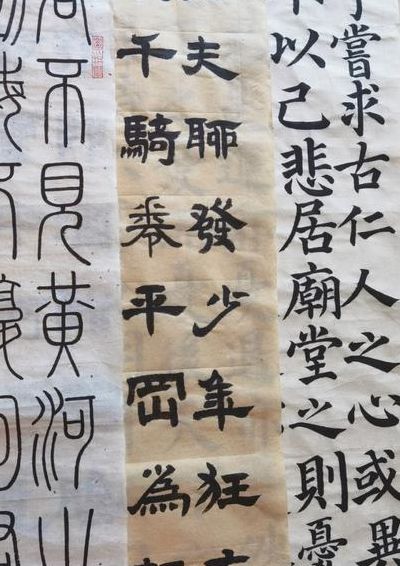 嘗求古仁人之心或異
不以己悲居廟堂之則憂
夫聊發少年狂
千騎卷平岡為
君不見黃河之
海不復回